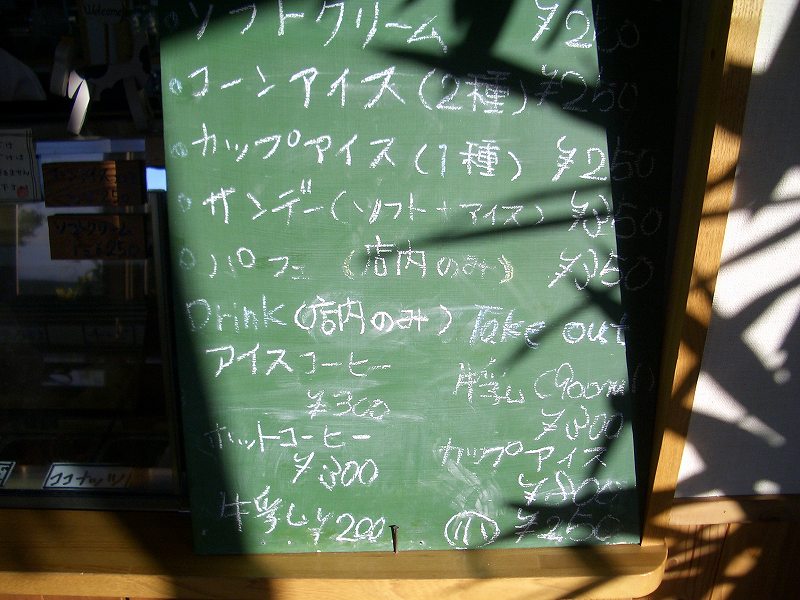 Welcome
ソフトクリーム ¥250
コーンアイス(2種) ¥250
カップアイス(1種) ¥250
サンデー(ソフト+アイス) ¥350
パフェ (店内のみ) ¥350
Drink(店内のみ) Take out
アイスコーヒー
¥300
牛乳(900ml)
ホットコーヒー
¥300
カップアイス
牛乳 ¥200
小 ¥250
ソフトクリーム
ココナッツ